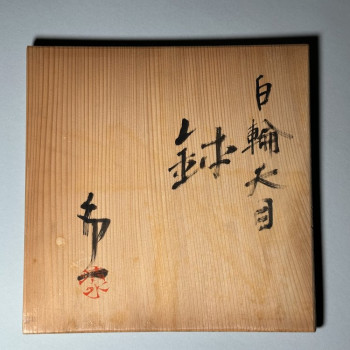 白輪天目
鉢